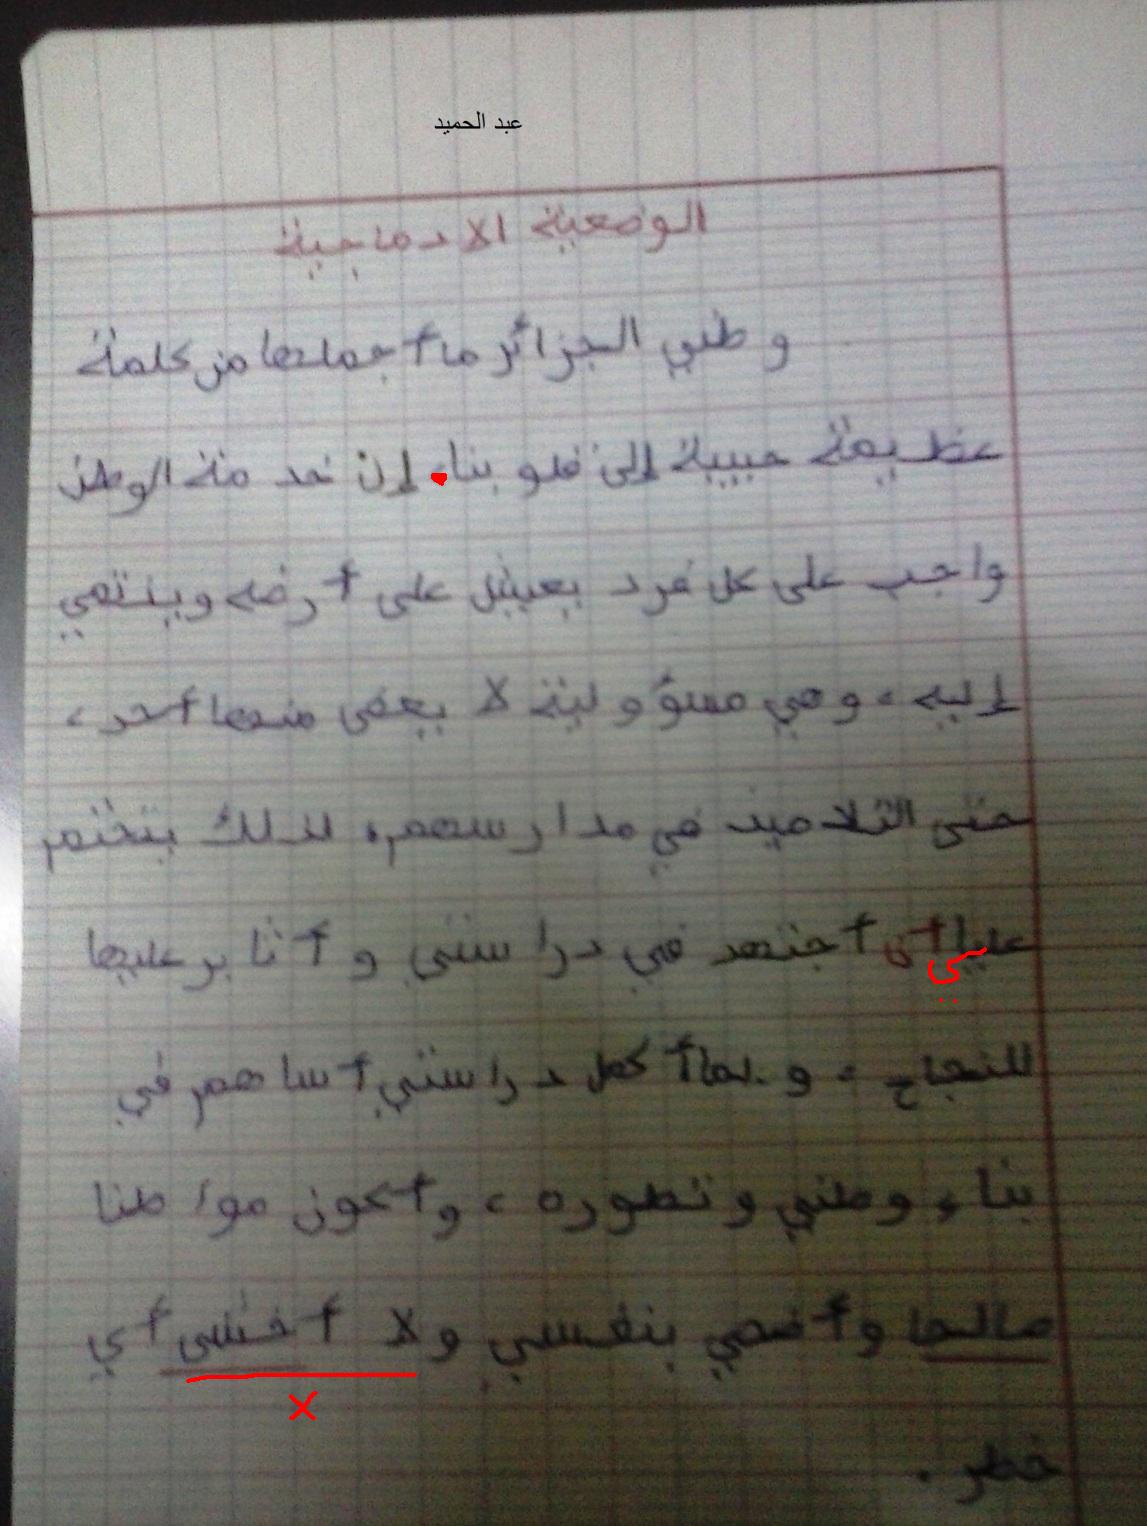 عبد الحميد
الوضعية الادماجية
وطني الجزائر ما أجملها من كلمة
عظيمة حبيبة إلى قلوبنا. إن خدمة الوطن
واجب على كل فرد يعيش على أرضه وينتمي
إليه، وهي مسؤولية لا يعفى منها أحد،
حتى التلاميذ في مدارسهم، لذلك يتحتم
عليا أن أجتهد في دراستي و أثابر عليها
للنجاح، و لما أكمل دراستي أساهم في
بناء وطني وتطوره، وأكون مواطنا
صالحا وأضحي بنفسي ولا أخشى أي
خطر.